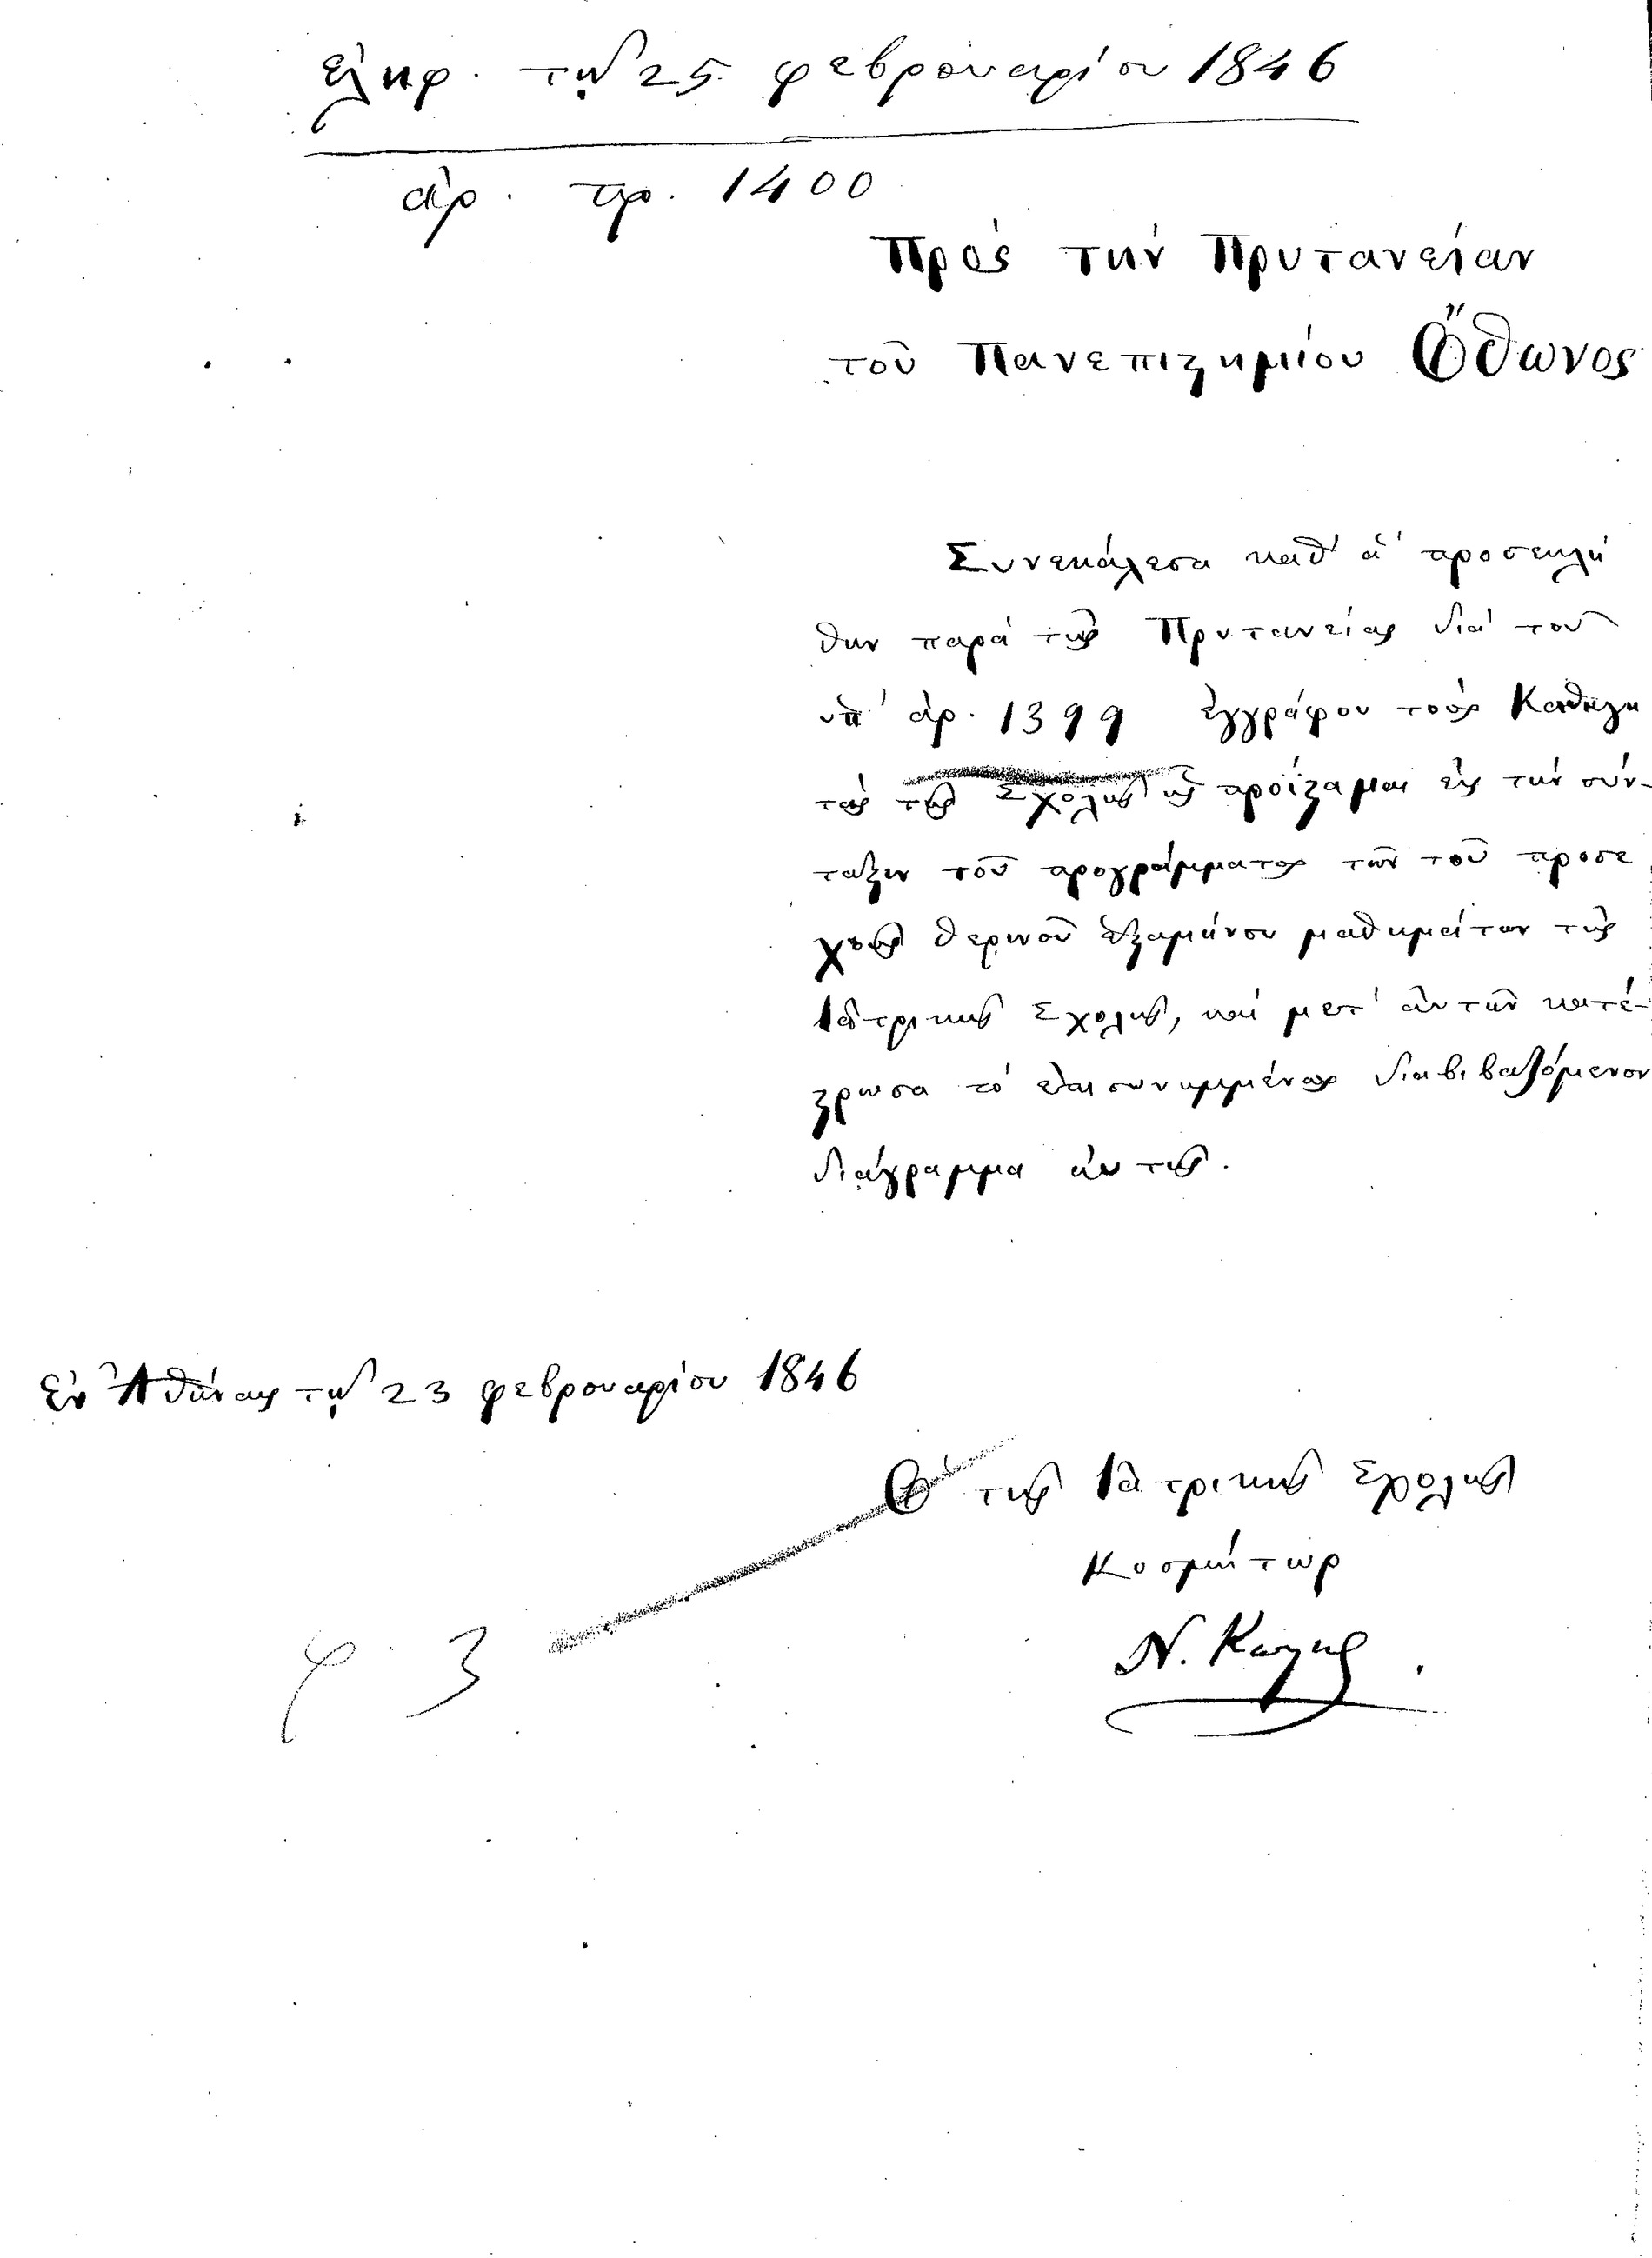 ἐλήφ. τῇ 25 φεβρουαρίου 1846
ἀρ. πρ. 1400
Πρὸς τὴν Πρυτανείαν
τοῦ Πανεπιϛημίου Ὄθωνος
Συνεκάλεσα καθ' ἃ προσεκλή
θην παρὰ τῆς Πρυτανείας διὰ τοῦ
ὑπ' ἀρ. 1399 ἐγγράφου τοὺς Καθηγη
τὰς τῆς Σχολῆς ἧς προΐϛαμαι εἰς τὴν σύν-
ταξιν τοῦ προγράμματος τῶν τοῦ προσε
χοῦς θερινοῦ ἑξαμήνου μαθημάτων τῆς
Ἰατρικῆς Σχολῆς, καὶ μετ' αὐτῶν κατέ-
ϛρωσα τὸ ἐπισυνημμένως διαβιβαζόμενον
διάγραμμα αὐτῆς.
Ἐν Ἀθήναις τῇ 23 φεβρουαρίου 1846
Ὁ τῆς Ἰατρικῆς Σχολῆς
Κοσμήτωρ
Ν. Κωϛης
φ. 3